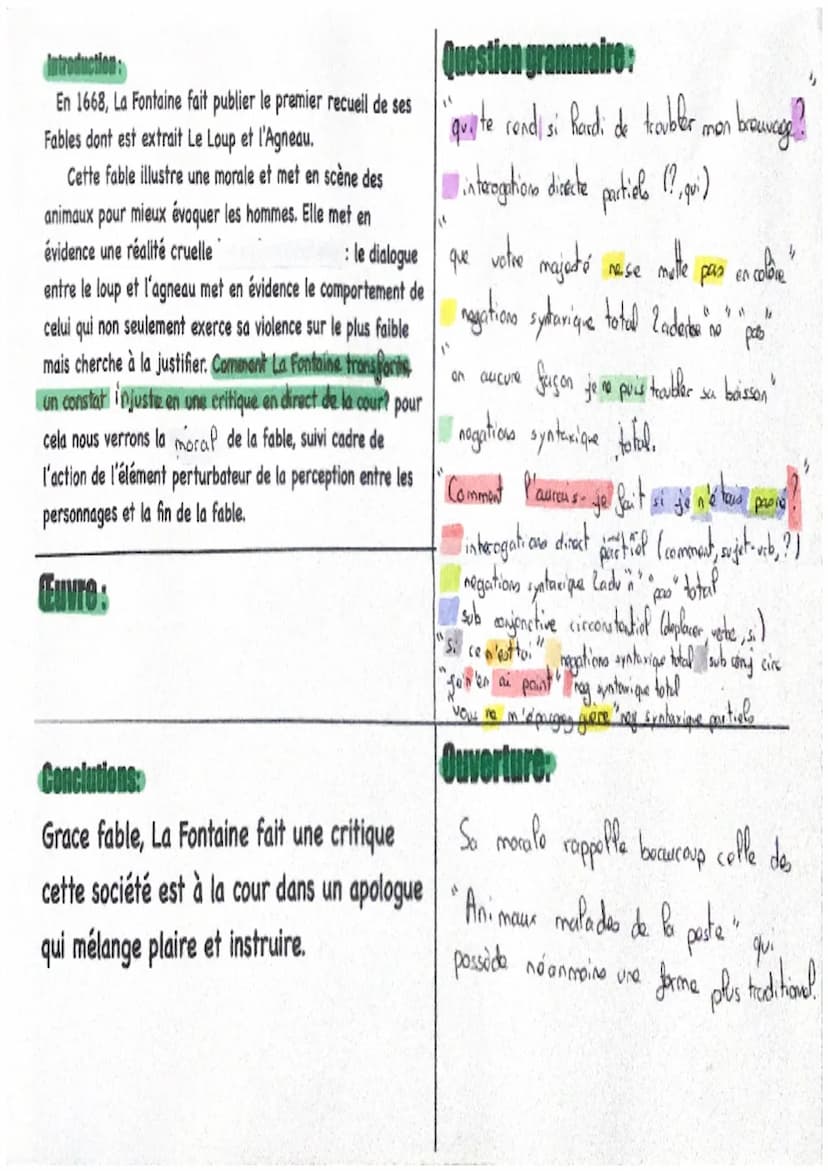 Introduction :
En 1668, La Fontaine fait publier le premier recueil de ses
Fables dont est extrait Le Loup et l'Agneau.
Cette fable illustre une morale et met en scène des
animaux pour mieux évoquer les hommes. Elle met en
évidence une réalité cruelle : le dialogue
entre le loup et l'agneau met en évidence le comportement de
celui qui non seulement exerce sa violence sur le plus faible
mais cherche à la justifier. Comment La Fontaine transforme
un constat injuste en une critique en direct de la cour? pour
cela nous verrons la moral de la fable, suivi cadre de
l'action de l'élément perturbateur de la perception entre les
personnages et la fin de la fable.
Œuvre :
Conclutions:
Grace fable, La Fontaine fait une critique
cette société est à la cour dans un apologue
qui mélange plaire et instruire.
Question grammaire :
"qui te rend si hardi de troubler mon breuvage?"
interogations directe partiels (?, qui)
"que votre majesté ne se mette pas en colère"
négations syntaxique total "ne" "pas"
"en aucune façon je ne puis troubler sa boisson"
négations syntaxique total.
"Comment l'aurais-je fait si je n'étais pas né?"
interogations direct partiel (comment, sujet-verb, ?)
négations syntaxique "n" "pas" total
sub conjonctive circonstantiel (déplacer, verbe, si)
"si ce n'est toi" négations syntaxique total sub conj circ
"je n'en ai point" neg syntaxique total
"vous ne m'épargnez guère" neg syntaxique partiels
Ouverture:
Sa morale rappelle beaucoup celle des
"Animaux malades de la peste" qui
possède néanmoins une forme plus traditionel.